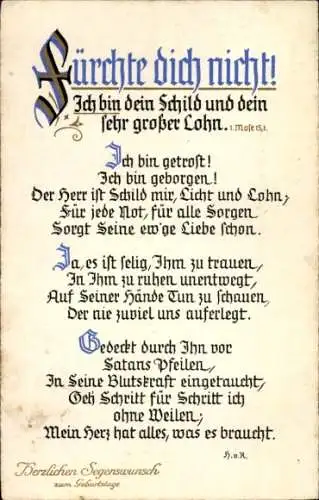 Fürchte dich nicht!
Ich bin dein Schild und dein
sehr großer Lohn. 1. Mose 15,1.
Ich bin getrost!
Ich bin geborgen!
Der Herr ist Schild mir, Licht und Lohn;
Für jede Not, für alle Sorgen
Sorgt Seine ew'ge Liebe schon.
Ja, es ist selig, Ihm zu trauen,
In Ihm zu ruhen unentwegt,
Auf Seiner Hände Tun zu schauen,
Der nie zuviel uns auferlegt.
Gedeckt durch Ihn vor
Satans Pfeilen,
In Seine Blutskraft eingetaucht,
Geh Schritt für Schritt ich
ohne Weilen;
Mein Herz hat alles, was es braucht.
H.v.R.
Herzlichen Segenswunsch
zum Geburtstage